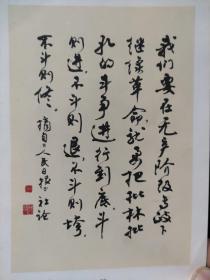 我们要在无产阶级专政下
继续革命，就要把批林批
孔的斗争进行到底。斗
则进，不斗则退，不斗则垮，
不斗则修。摘自《人民日报》社论